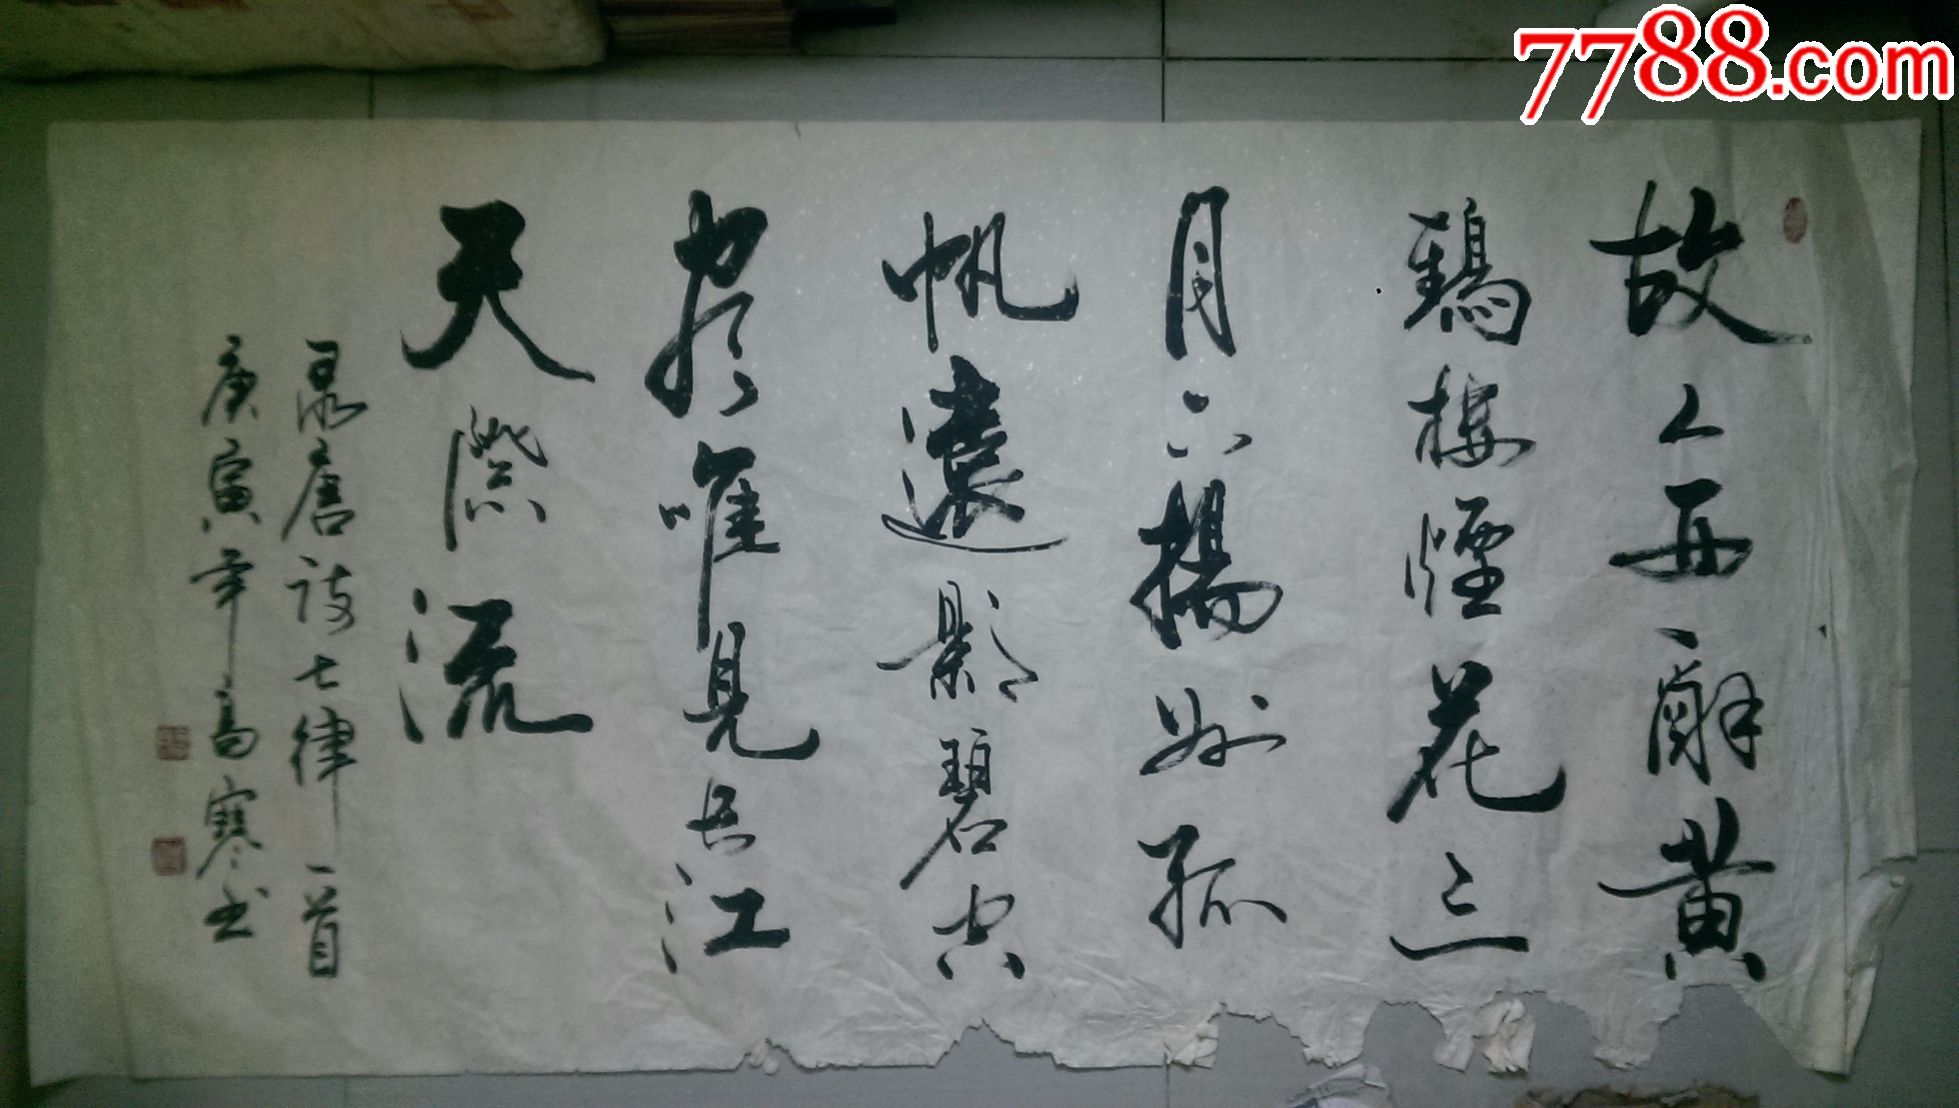 7788.com
故人西辭黃
鶴樓煙花三
月下揚州孤
帆遠影碧空
盡唯見長江
天際流
录唐诗七律一首
庚寅年高寒书